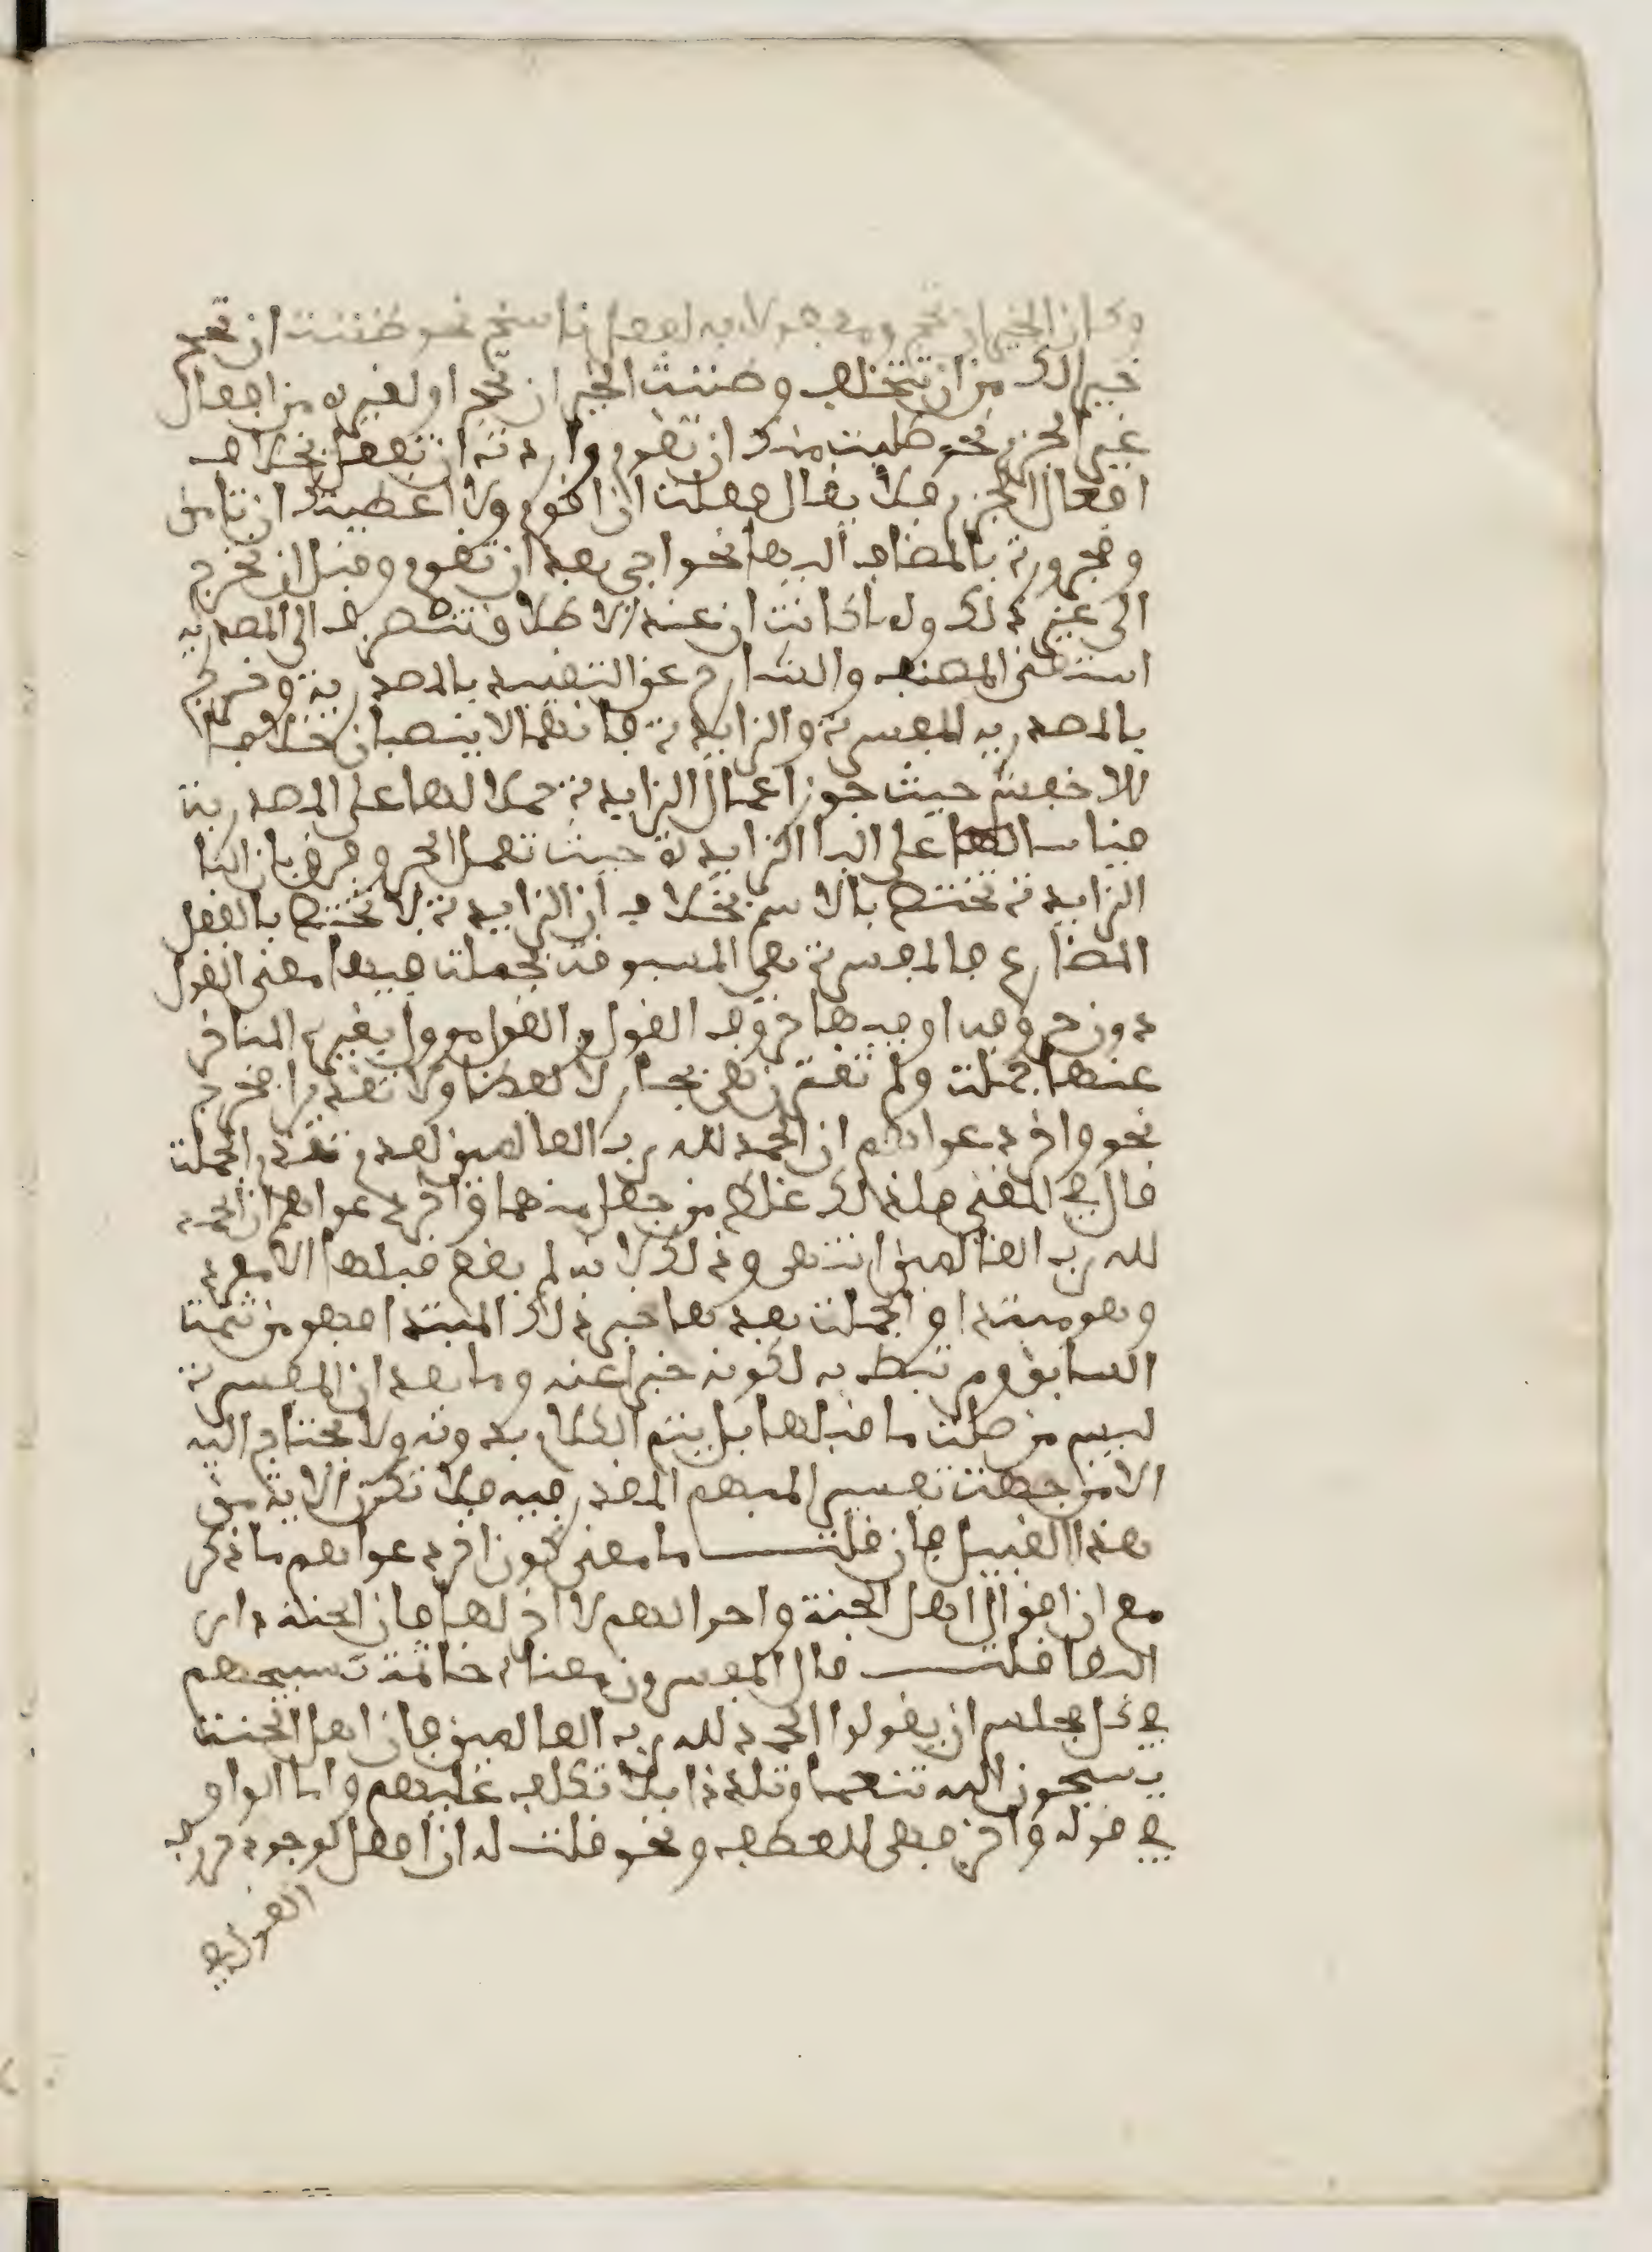 وكان الخير ان تحج ومفعولا به لفعل ناسخ نحو ظننت ان تحج
خير لك من ان تتخلف وظننت الخير ان تحج او لغيره من افعال
غير الجزم نحو طلبت منك ان تقوم واردت ان تفعل بخلاف
افعال الجزم فلا يقال فعلت ان اقوم ولا اعطيتك ان تامن
ومجرورة بالمضاف اليها نحو اجي بعد ان تقوم وقبل ان تخرج
الى غير ذلك ولما كانت ان عند الاطلاق تنصرف الى المصدرية
استغنى المصنف والشارح عن التقييد بالمصدرية وخرج
بالمصدرية المفسرة والزايدة فانهما لا ينصبان خلافا
للاخفش حيث جوز اعمال الزايدة حملا لها على المصدرية
قياسا لها على البا الزايدة حيث تعمل الجر وفرق بان البا
الزايدة تختص بالاسم بخلاف ان الزايدة لا تختص بالفعل
المضارع فالمفسرة هي المسبوقة بجملة فيها معنى القول
دون حروفه او فيها حروف القول والقول مؤول بغيره المتاخر
عنها جملة ولم تقترن هي بجار لا لفظا ولا تقديرا فخرج
نحو واخر دعواهم ان الحمد لله رب العالمين لعدم تقدم الجملة
قال في المغني فلذلك غلط من جعل منها واخر دعواهم ان الحمد
لله رب العالمين انتهى وذلك لانه لم يقع قبلها الا مفرد
وهو مبتدا والجملة بعدها خبر ذلك المبتدا فهو من تتمة
السابق ومرتبط به لكونه خبرا عنه وما بعد ان المفسرة
ليس من صلة ما قبلها بل يتم الكلام بدونه ولا يحتاج اليه
الا من جهة تفسير المبهم المقدر فيه فلا تكون الاية من
هذا القبيل فان قلت ما معنى كون اخر دعواهم ما ذكر
مع ان اقوال اهل الجنة واحوالهم لا اخر لها فان الجنة دار
البقا قلت قال المفسرون معناه خاتمة تسبيحهم
في كل مجلس ان يقولوا الحمد لله رب العالمين فان اهل الجنة
يسبحون الله تنعما وتلذذا بلا تكلف عليهم واما الواو
في قوله واخر فهي للعطف ونحو قلت له ان افعل لوجود حروف
القول في